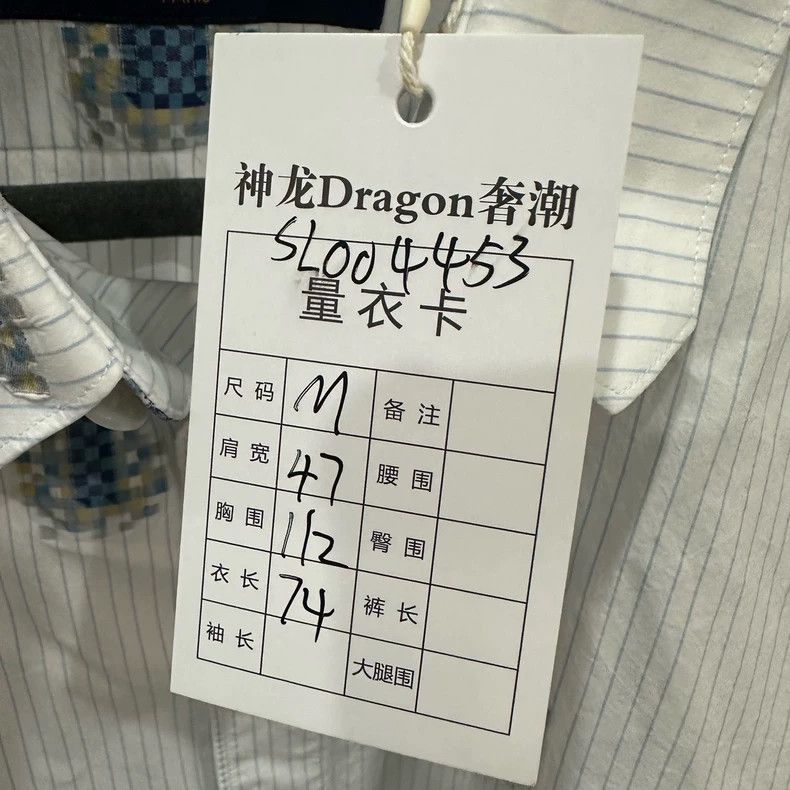 神龙Dragon奢潮
SL004453
量衣卡
尺码 M 备注
肩宽 47 腰围
胸围 112 臀围
衣长 74 裤长
袖长 大腿围